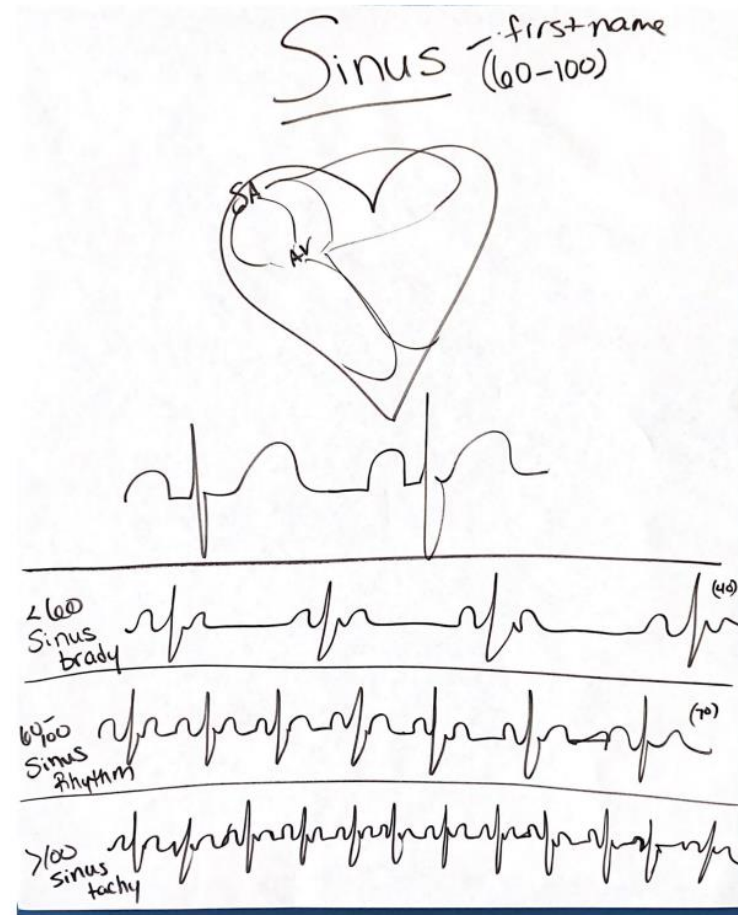 Sinus - first name
(60-100)
SA
AV
<60
Sinus
brady
(40)
60-100
Sinus
Rhythm
(70)
>100
Sinus
tachy